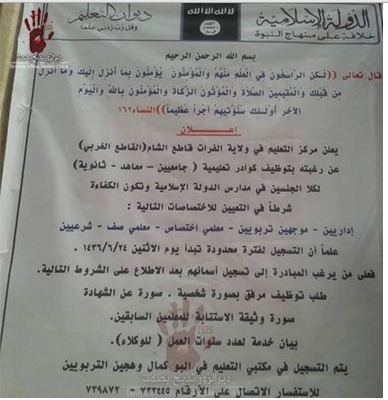 الدولة الإسلامية
خلافة على منهاج النبوة
لا اله الا الله
الله رسول محمد
ديوان التعليم
وقل رب زدني علما
بسم الله الرحمن الرحيم
قال تعالى ((لكن الراسخون في العلم منهم والمؤمنون يؤمنون بما أنزل إليك وما أنزل
من قبلك والمقيمين الصلاة والمؤتون الزكاة والمؤمنون بالله واليوم
الآخر أولئك سنؤتيهم أجراً عظيماً)) النساء١٦٢
إعـــلان
يعلن مركز التعليم في ولاية الفرات قاطع الشام(القاطع الغربي)
عن رغبته بتوظيف كوادر تعليمية ( جامعيين - معاهد - ثانوية )
لكلا الجنسين في مدارس الدولة الإسلامية وتكون الكفاءة
شرطاً في التعيين للاختصاصات التالية :
إداريين - موجهين تربويين - معلمي اختصاص - معلمي صف - شرعيين
علماً أن التسجيل لفترة محدودة تبدأ يوم الاثنين ١٤٣٦/٦/٢٤
فعلى من يرغب المبادرة إلى تسجيل أسمائهم بعد الاطلاع على الشروط التالية.
طلب توظيف مرفق بصورة شخصية . صورة عن الشهادة
صورة وثيقة الاستتابة للمعلمين السابقين.
بيان خدمة لعدد سنوات العمل ( للوكلاء).
يتم التسجيل في مكتبي التعليم في البو كمال وهجين التربويين
للاستفسار الاتصال على الأرقام ٧٣٣٤٤٥ - ٧٣٩٨٧٢
ISIS
ديرالزور تذبح بصمت